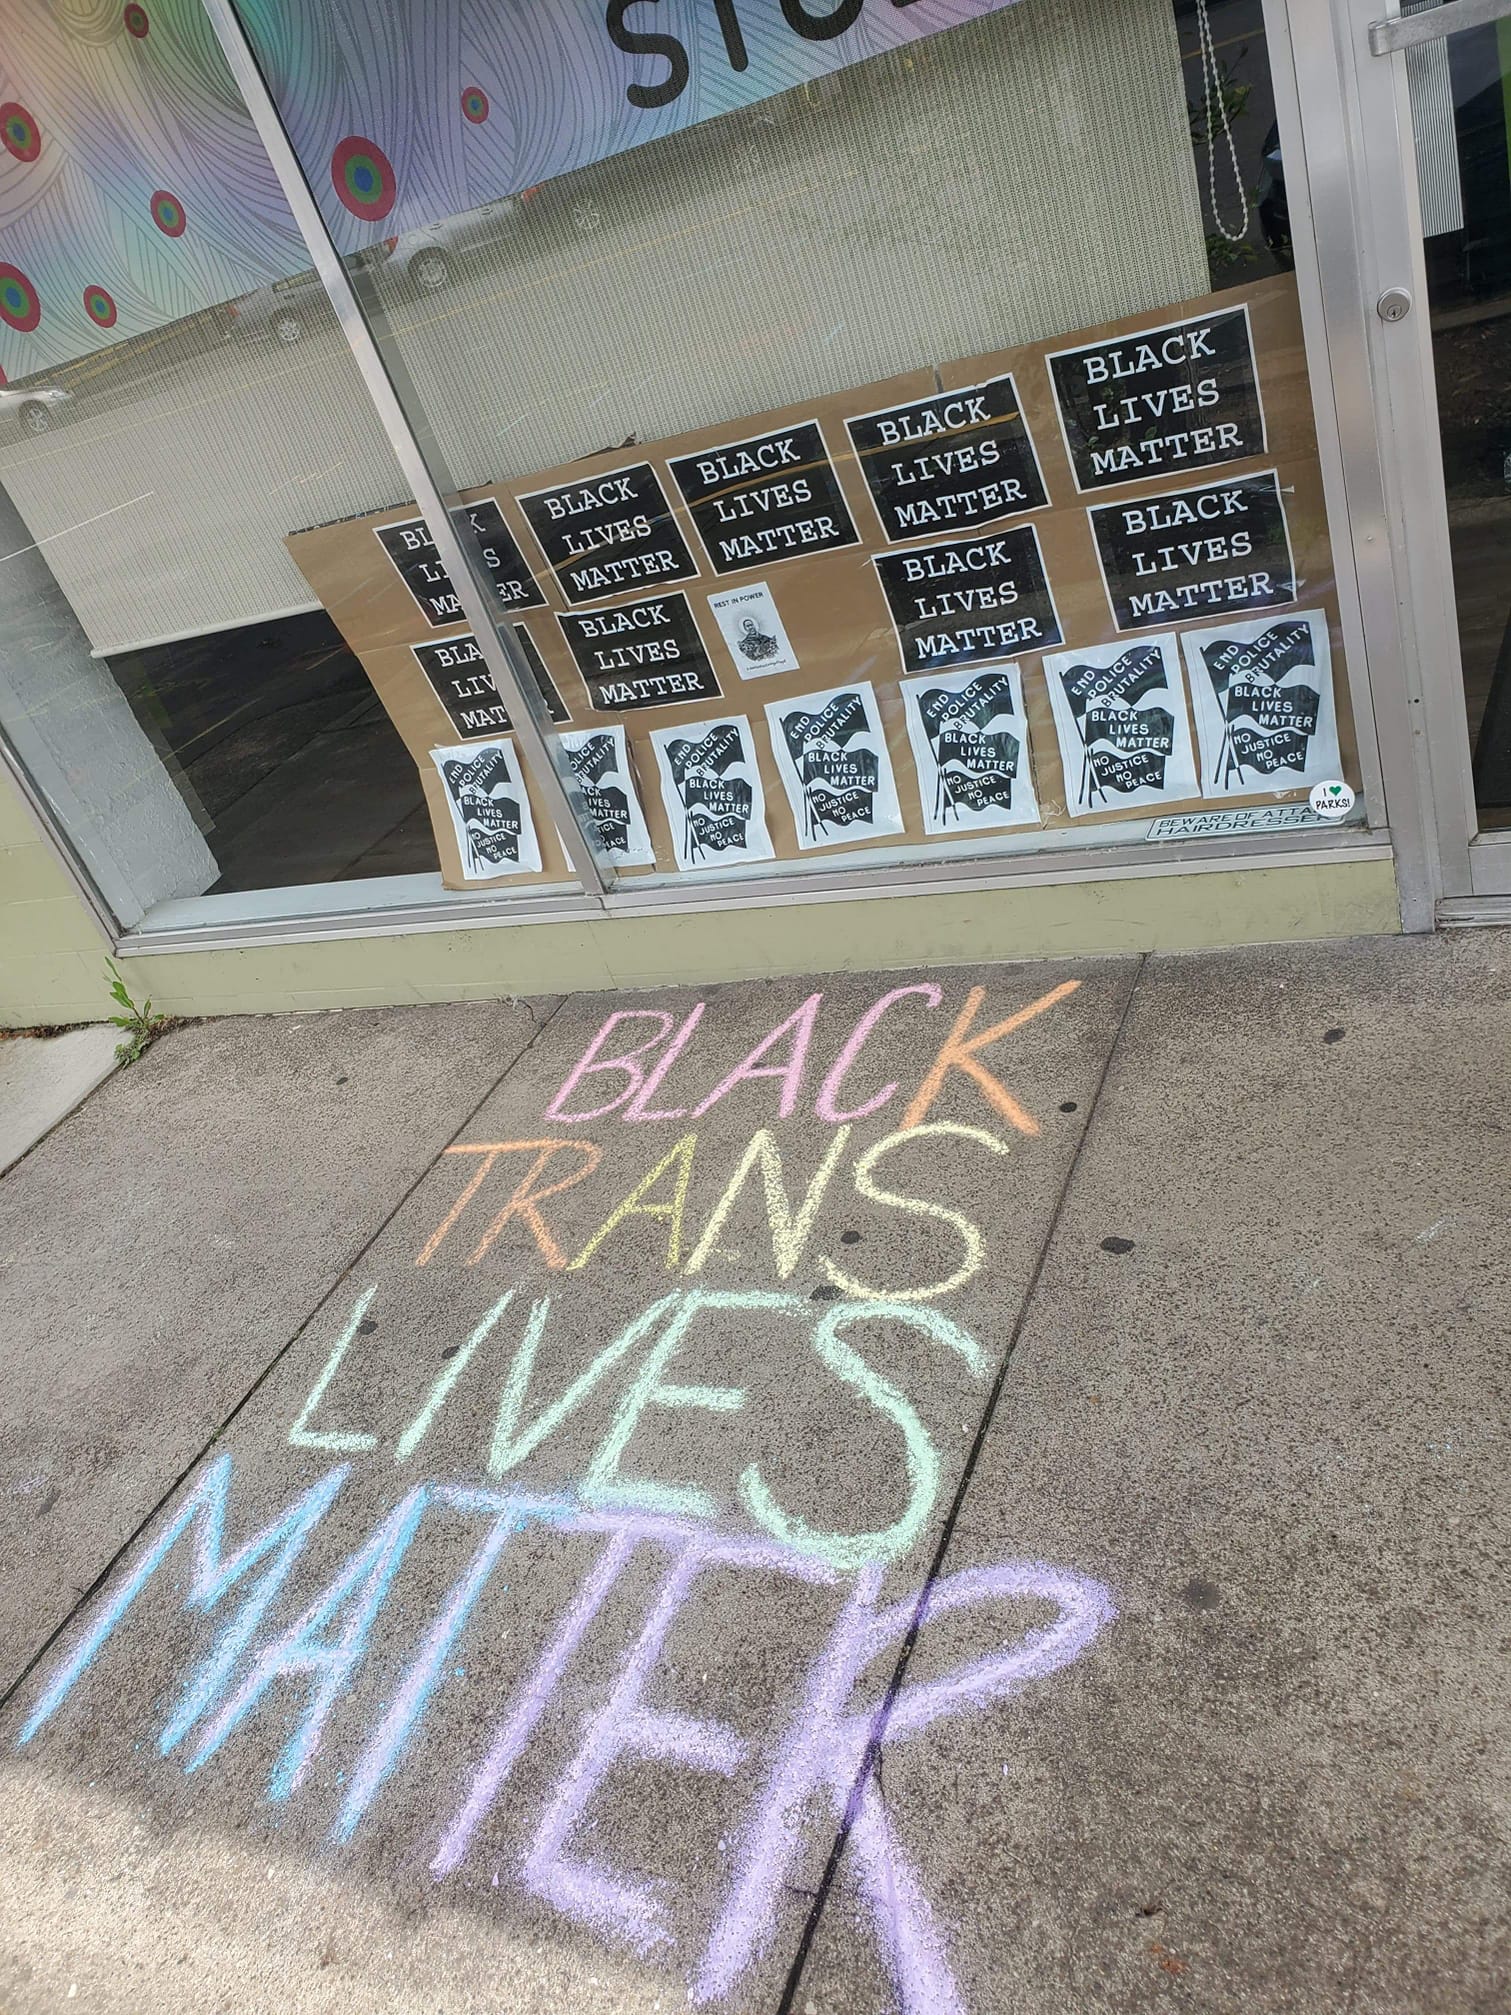 BLACK
LIVES
MATTER
BLACK
LIVES
MATTER
BLACK
LIVES
MATTER
BLACK
LIVES
MATTER
BLACK
LIVES
MATTER
BLACK
LIVES
MATTER
REST IN POWER
BLACK
LIVES
MATTER
BLACK
LIVES
MATTER
END
POLICE
BRUTALITY
BLACK
LIVES
MATTER
NO
JUSTICE
NO
PEACE
POLICE
BRUTALITY
LIVES
MATTER
PEACE
END
POLICE
BRUTALITY
BLACK
LIVES
MATTER
NO
JUSTICE
NO
PEACE
END
POLICE
BRUTALITY
BLACK
LIVES
MATTER
NO
JUSTICE
NO
PEACE
END
POLICE
BRUTALITY
BLACK
LIVES
MATTER
NO
JUSTICE
NO
PEACE
END
POLICE
BRUTALITY
BLACK
LIVES
MATTER
NO
JUSTICE
NO
PEACE
END
POLICE
BRUTALITY
BLACK
LIVES
MATTER
NO
JUSTICE
NO
PEACE
I ♥
PARKS!
BEWARE OF
BLACK
TRANS
LIVES
MATTER